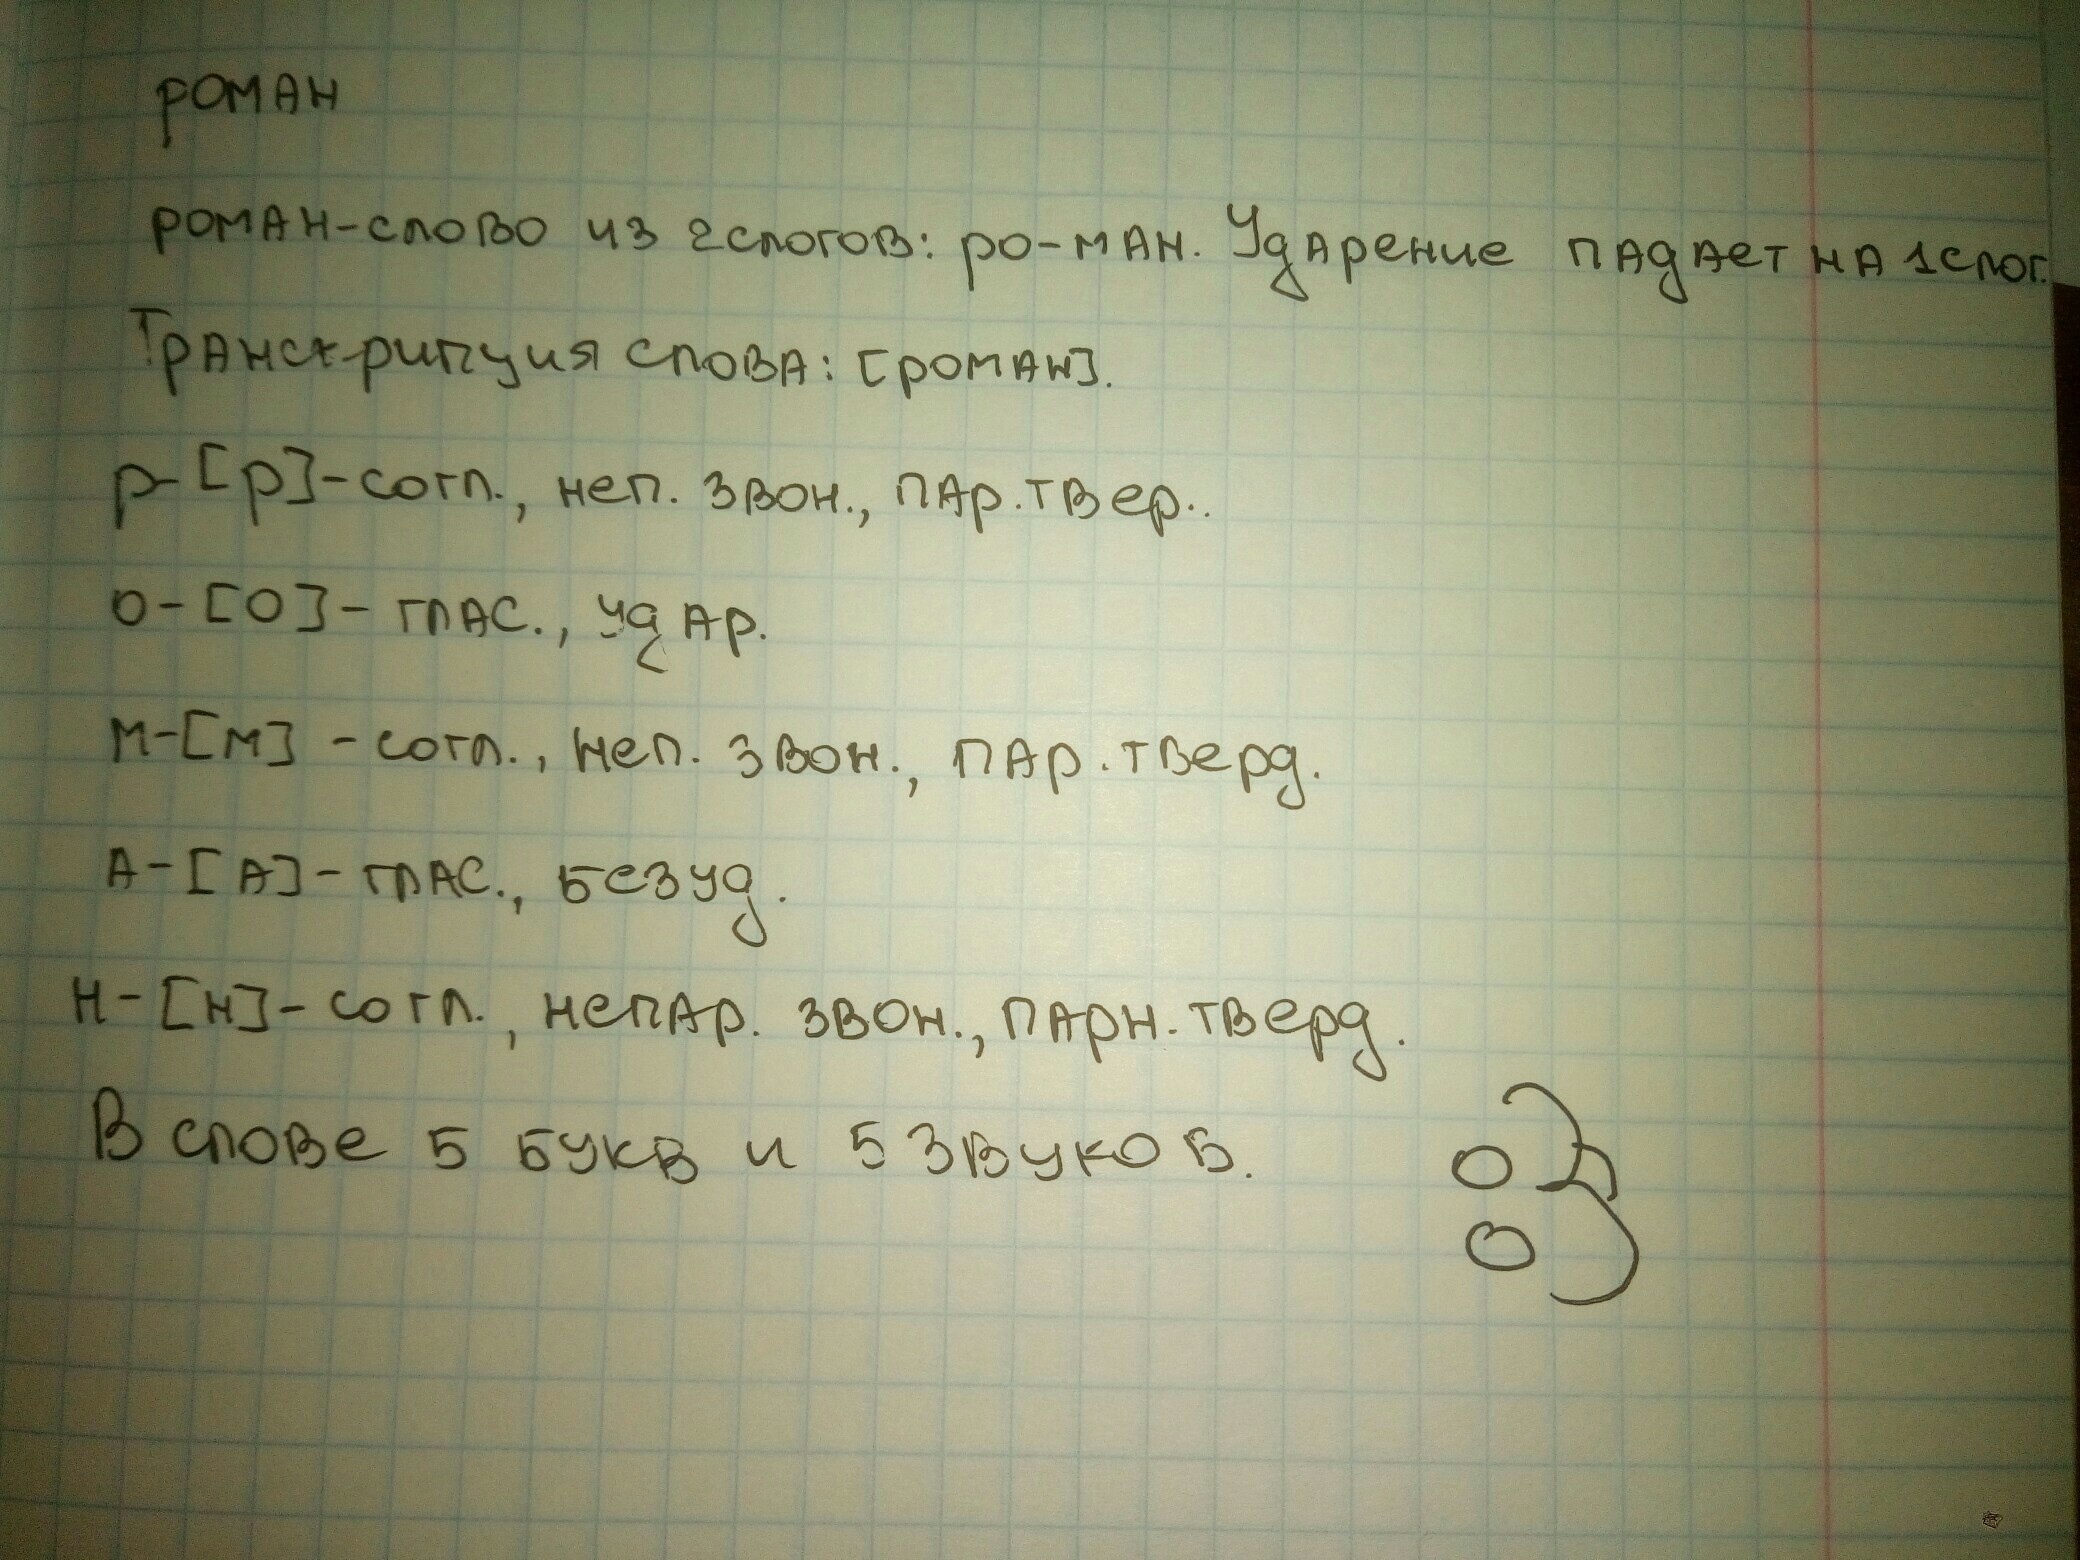 роман
роман-слово из 2слогов: ро-ман. Ударение падает на 1слог.
Транскрипция слова: [роман].
р-[р]-согл., неп. звон., пар.твер..
о-[о]-глас., удар.
м-[м] -согл., неп. звон., пар.тверд.
а-[а]-глас., безуд.
н-[н]-согл., непар. звон., парн.тверд.
В слове 5 букв и 5 звуков.